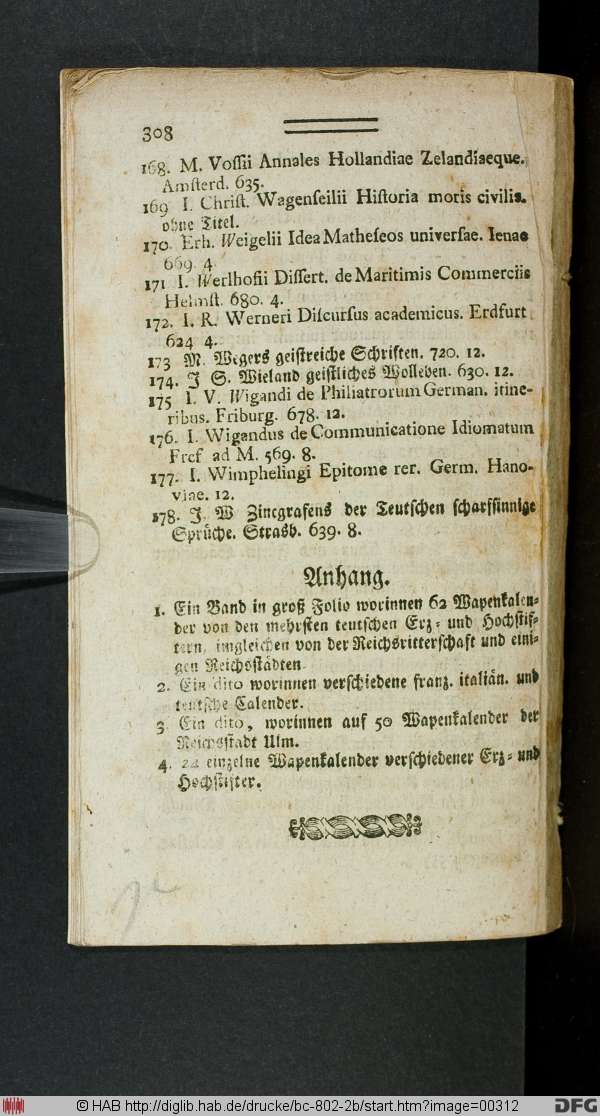 308
168. M. Vossii Annales Hollandiae Zelandiaeque.
Amsterd. 635.
169 I. Christ. Wagenseilii Historia moris civilis.
ohne Titel.
170. Erh. Weigelii Idea Matheseos universae. Ienae
669. 4
171 I. Werlhofii Dissert. de Maritimis Commerciis
Helmst. 680. 4.
172. I. R. Werneri Discursus academicus. Erdfurt
624 4.
173 M. Wegers geistreiche Schriften. 720. 12.
174. J S. Wieland geistliches Wolleben. 630. 12.
175 I. V. Wigandi de Philiatrorum German. itine-
ribus. Friburg. 678. 12.
176. I. Wigandus de Communicatione Idiomatum
Fref ad M. 569. 8.
177. I. Wimphelingi Epitome rer. Germ. Hano-
viae. 12.
178. J. W Zincgrafens der Teutschen scharfsinnige
Sprüche. Strasb. 639. 8.
Anhang.
1. Ein Band in groß Folio worinnen 62 Wapenkalen-
der von den mehrsten teutschen Erz- und Hochstif-
tern, imgleichen von der Reichsritterschaft und eini-
gen Reichsstädten.
2. Ein dito worinnen verschiedene franz. italiän. und
teutsche Calender.
3 Ein dito, worinnen auf 50 Wapenkalender der
Reichsstadt Ulm.
4. 22 einzelne Wapenkalender verschiedener Erz- und
Hochstifter.
© HAB http://diglib.hab.de/drucke/bc-802-2b/start.htm?image=00312
DFG